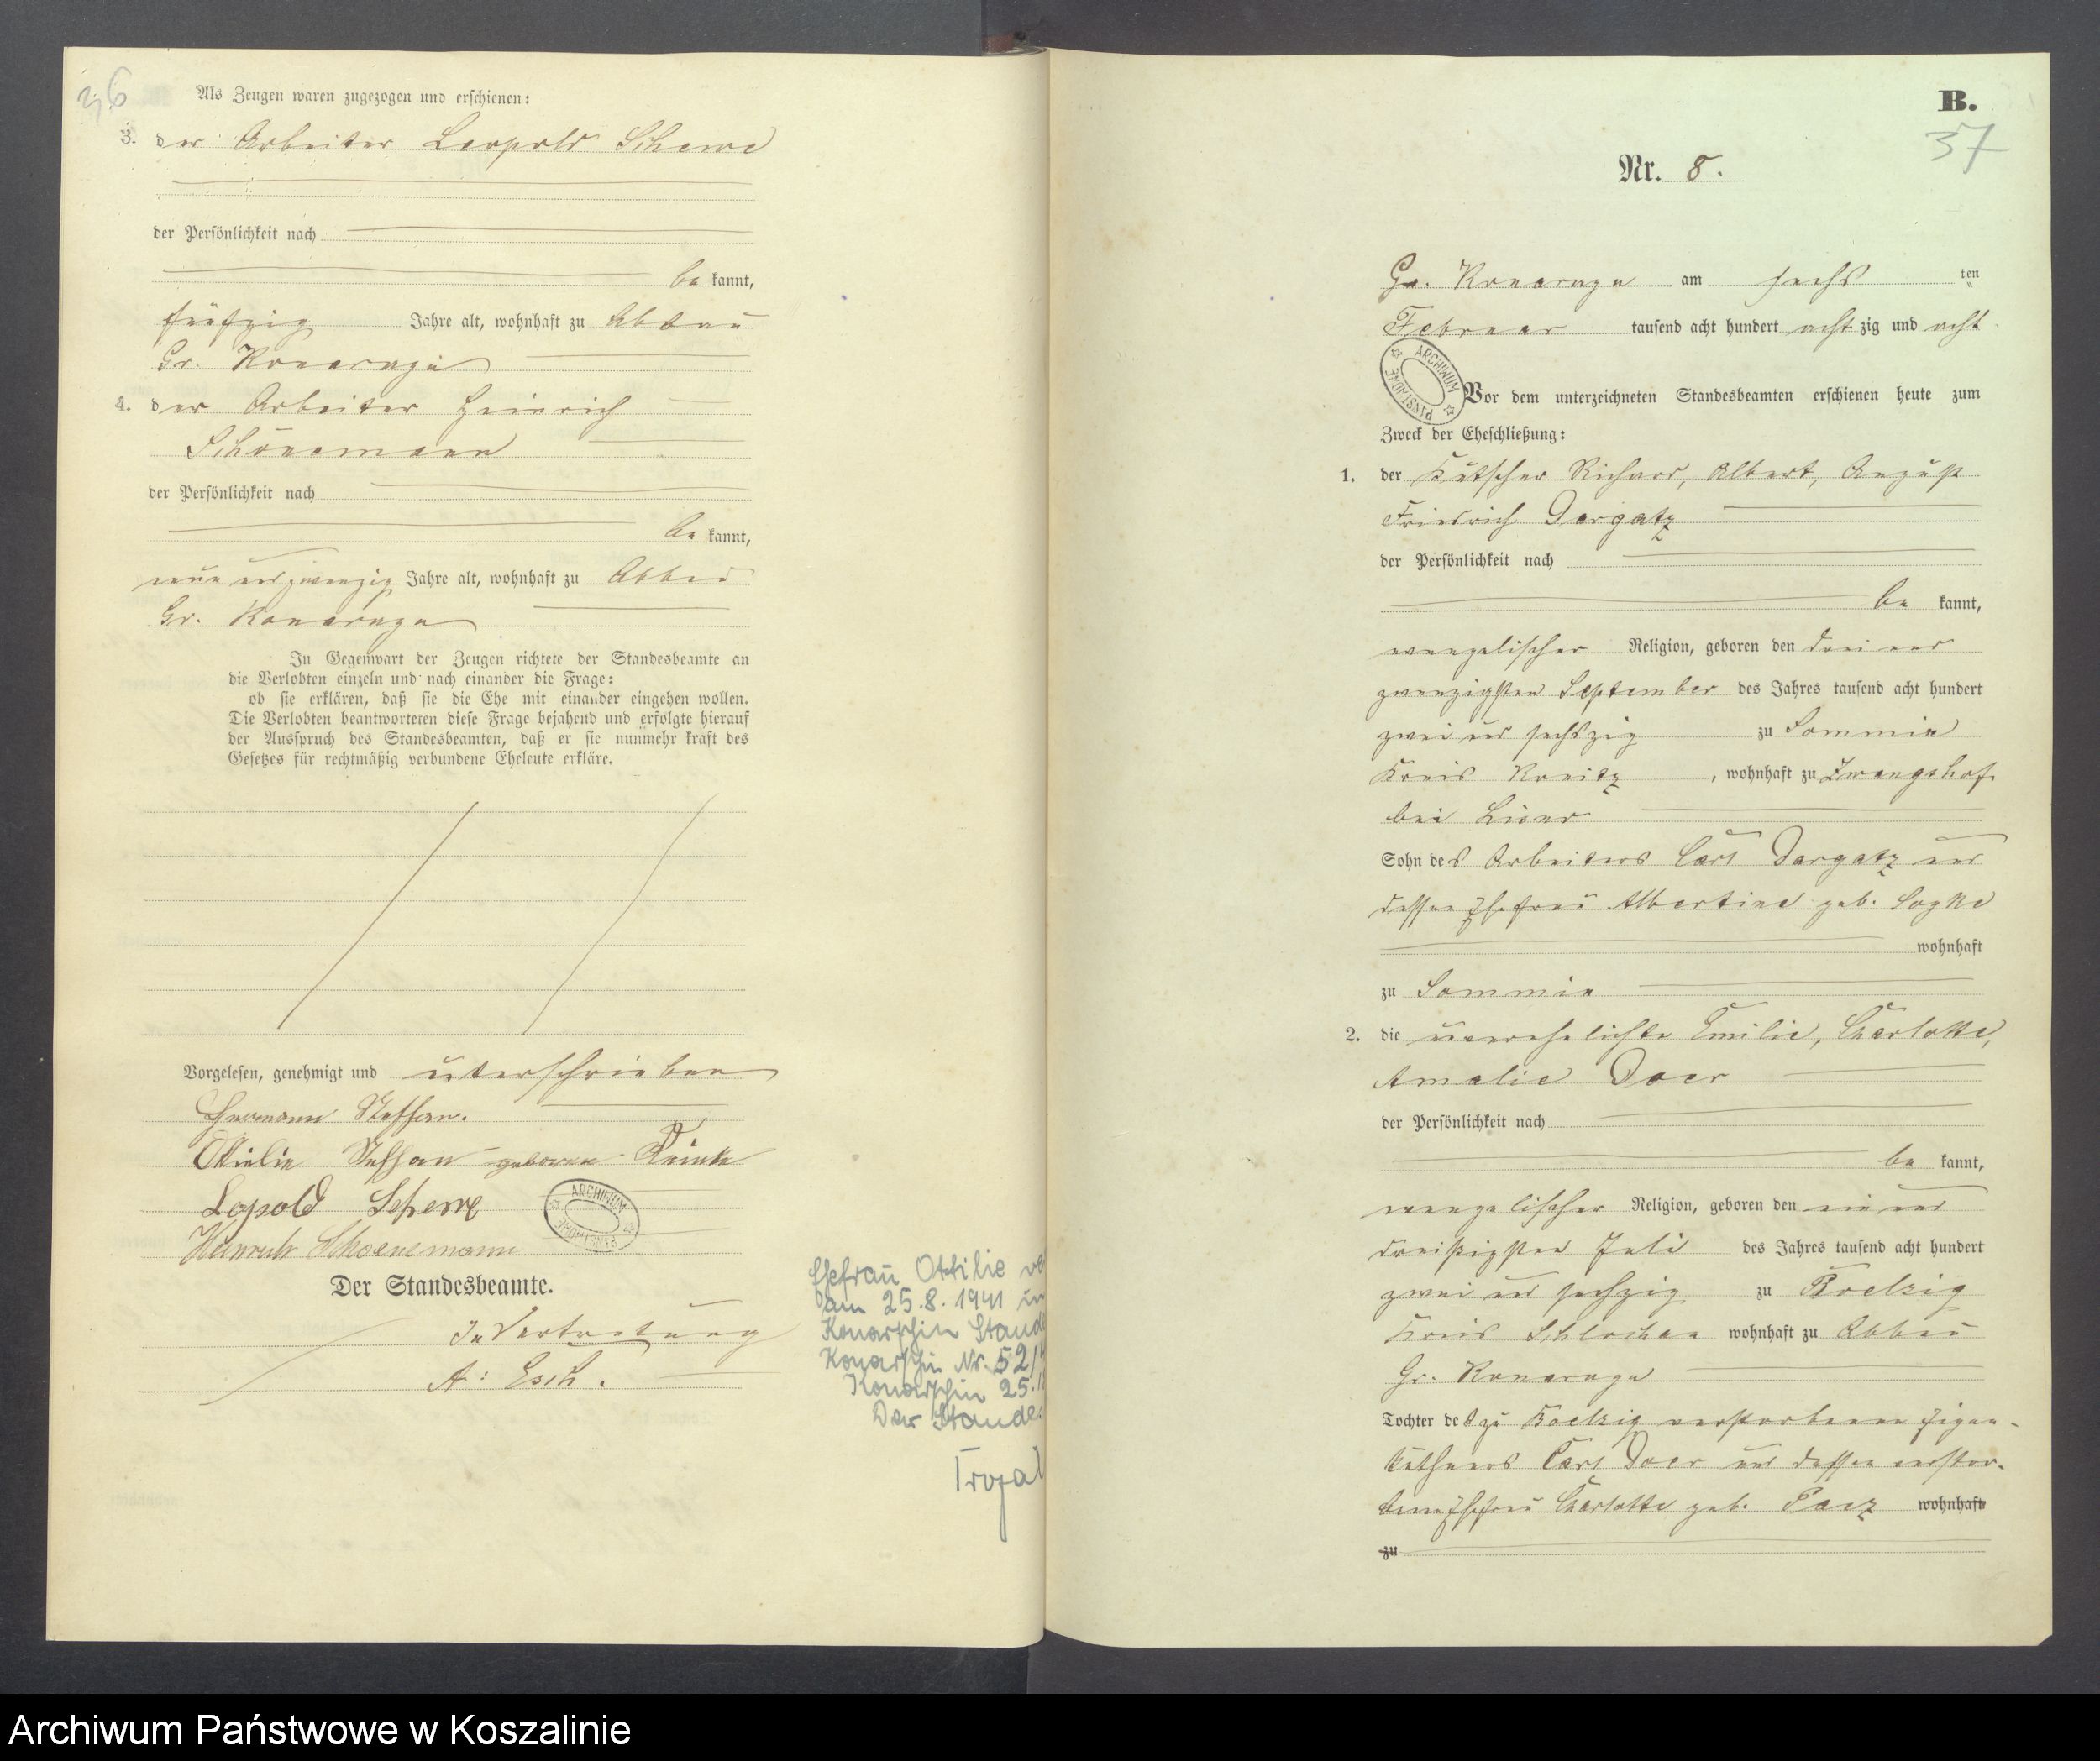 36
Als Zeugen waren zugezogen und erschienen:
3. der Arbeiter Leopold Schewe
der Persönlichkeit nach
be kannt,
fünfzig Jahre alt, wohnhaft zu Abbau
Gr. Konarczyn
4. der Arbeiter Heinrich
Schönemann
der Persönlichkeit nach
be kannt,
neun und zwanzig Jahre alt, wohnhaft zu Abbau
Gr. Konarczyn
In Gegenwart der Zeugen richtete der Standesbeamte an
die Verlobten einzeln und nach einander die Frage:
ob sie erklären, daß sie die Ehe mit einander eingehen wollen.
Die Verlobten beantworteten diese Frage bejahend und erfolgte hierauf
der Ausspruch des Standesbeamten, daß er sie nunmehr kraft des
Gesetzes für rechtmäßig verbundene Eheleute erkläre.
Vorgelesen, genehmigt und unterschrieben
Hermann Steffan.
Ottilie Steffan geboren
Lepold Schewe
Heinrich Schoenemann
ARCHIWUM PAŃSTWOWE
Der Standesbeamte.
In Vertretung
A: Esch.
Ehefrau Ottilie ve
am 25.8.1941 in
Konarschin Stand
Konarschin Nr. 52/
Konarschin 25.
Der Standes
B.
37
Nr. 8.
Gr. Konarczyn am sechsten
Februar tausend acht hundert acht zig und acht
ARCHIWUM PAŃSTWOWE
Vor dem unterzeichneten Standesbeamten erschienen heute zum
Zweck der Eheschließung:
1. der Kutscher Richard, Albert, August
Friedrich Dargatz
der Persönlichkeit nach
be kannt,
evangelischer Religion, geboren den drei und
zwanzigsten September des Jahres tausend acht hundert
zwei und sechszig zu Sommin
Kreis Konitz, wohnhaft zu Zwangshof
bei
Sohn des Arbeiters Carl Dargatz und
dessen Ehefrau Albertine geb.
wohnhaft
zu Sommin
2. die unverehelichte Emilie, Charlotte,
Amalie Doer
der Persönlichkeit nach
be kannt,
evangelischer Religion, geboren den ein und
dreißigsten Juli des Jahres tausend acht hundert
zwei und sechzig zu Koelzig
Kreis Schlochau wohnhaft zu Abbau
Gr. Konarczyn
Tochter des zu Koelzig verstorbenen Eigen-
käthners Carl Doer und dessen verstor-
benen Ehefrau Charlotte geb. wohnhaft
zu
Archiwum Państwowe w Koszalinie